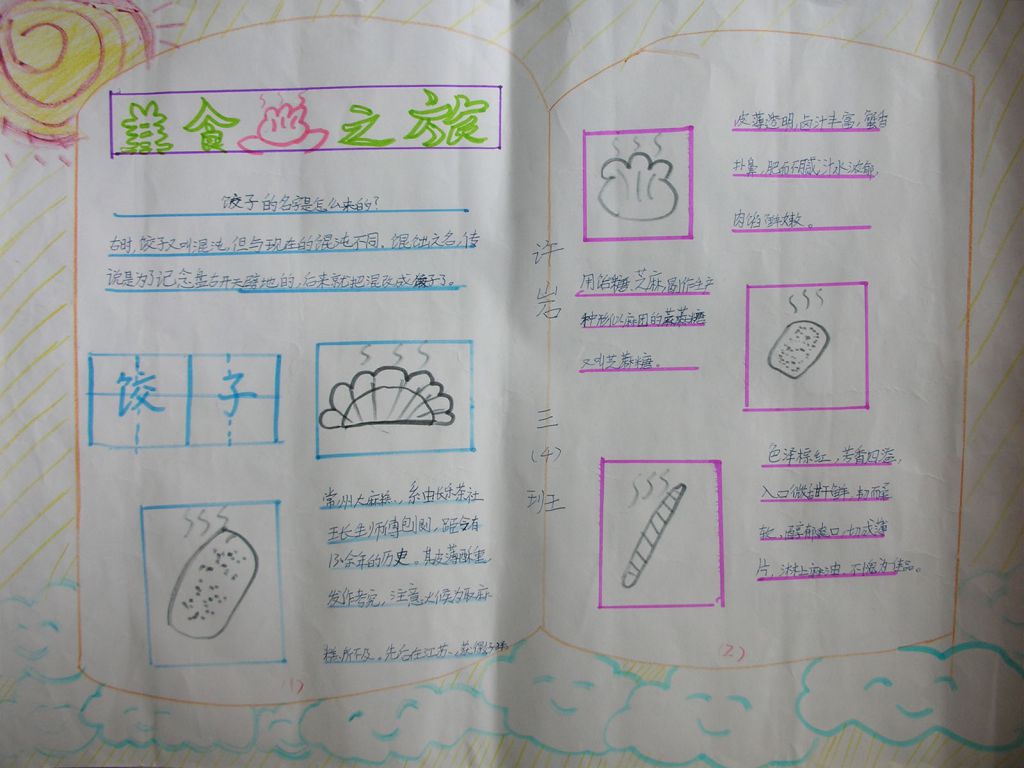 美食之旅
饺子的名字是怎么来的?
古时,饺子又叫混沌,但与现在的馄饨不同。馄饨之名,传
说是为了记念盘古开天辟地的,后来就把混改成饺子了。
饺子
常州大麻糕,系由长乐茶社
王长生师傅创制,距今有
150余年的历史。其皮薄酥重
发作考究,注意火候为取麻
糕所不及。先后在江苏、
(1)
许岩
三
(4)
班
皮薄透明,卤汁丰富,蟹香
扑鼻,肥而不腻,汁水浓郁,
肉馅鲜嫩。
用饴糖、芝麻
种形似麻团的
又叫芝麻糖。
色泽棕红,芳香四溢,
入口微甜鲜,韧而柔
软,醇郁爽口,切成薄
片,淋上麻油,不愧为佳品。
(2)